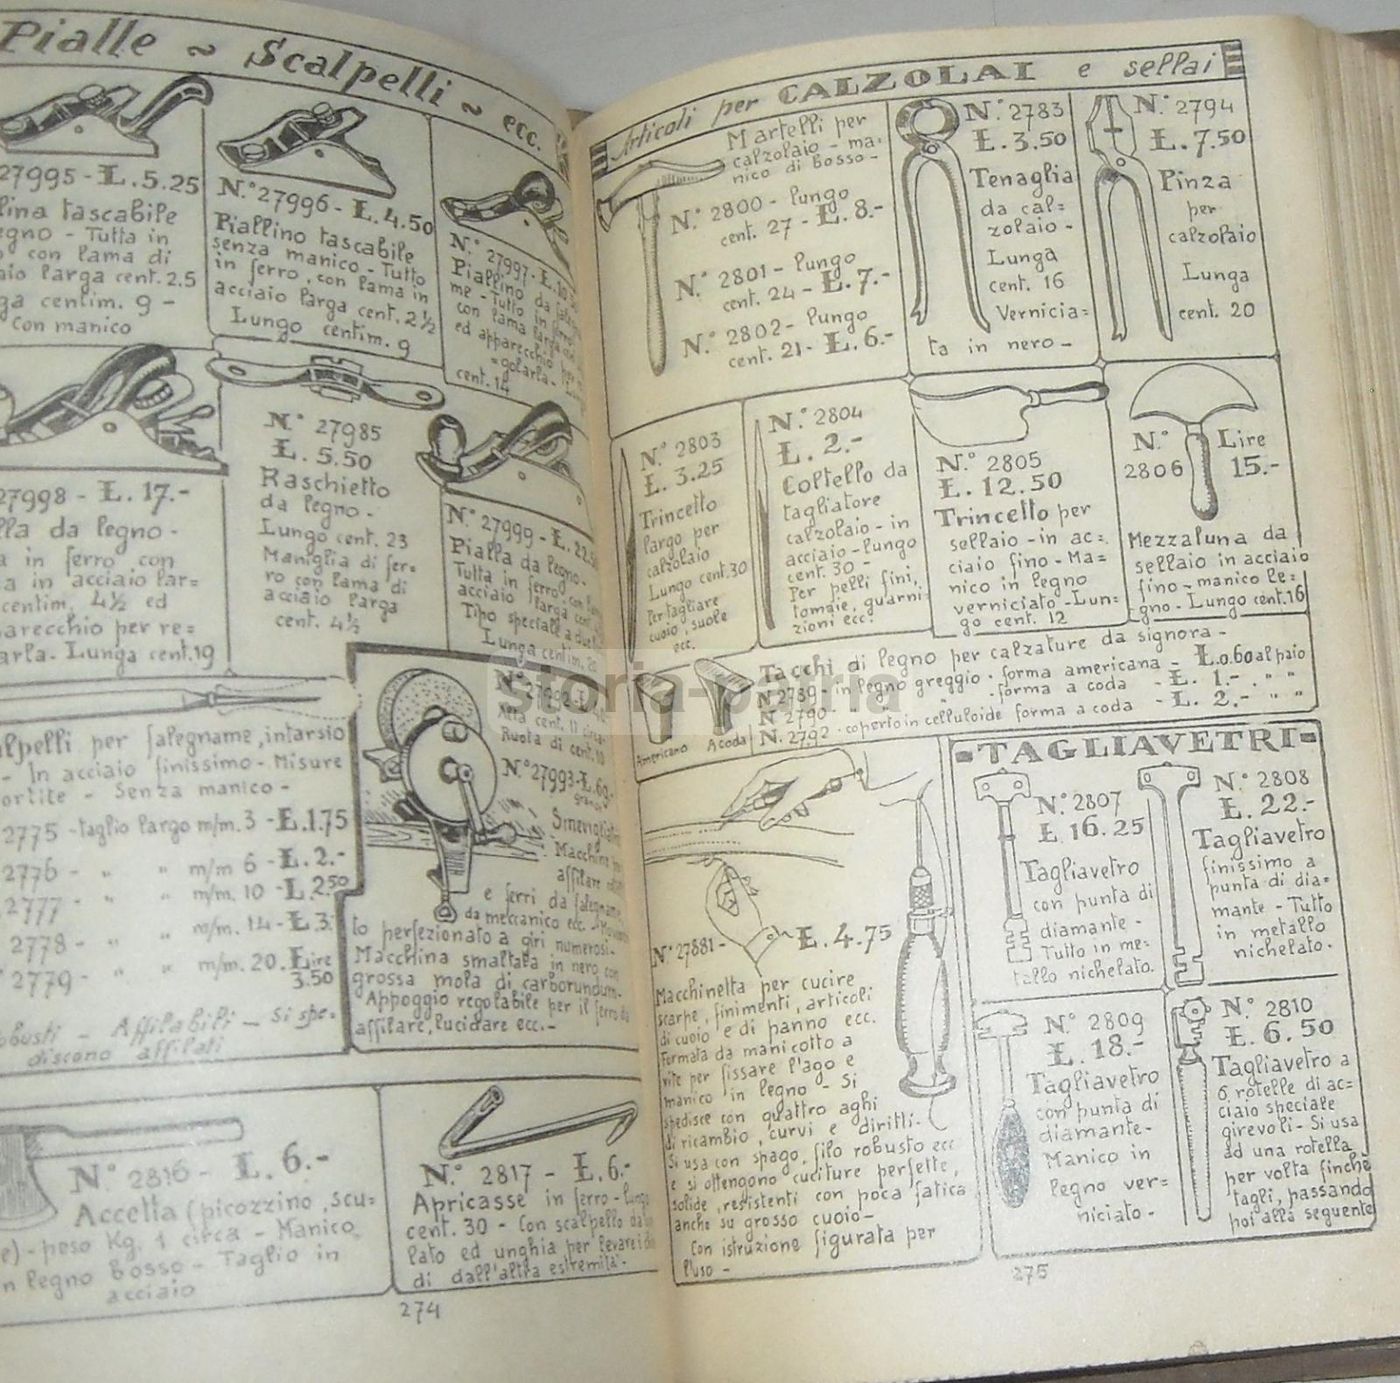 Pialle ~ Scalpelli ~ ecc.
27995 - L. 5.25
tascabile
- Tutta in
con lama di
largo cent. 2.5
centim. 9 -
con manico
N.° 27996 - L. 4.50
Piallino tascabile
senza manico - Tutto
in ferro, con lama in
acciaio larga cent. 2½
Lungo centim. 9
N.° 27997 - L.
Piallino da
me - Tutto in
con lama larga
ed apparecchio per
=golarla -
cent. 14
27998 - L. 17.-
da legno -
in ferro con
in acciaio lar=
centim. 4½ ed
parecchio per re=
larla - Lunga cent. 19
N.° 27985
L. 5.50
Raschietto
da legno -
Lungo cent. 23
Maniglia di fer-
ro con lama di
acciaio larga
cent. 4½
N.° 27999 - L. 22.50
Pialla da legno -
Tutta in ferro con
acciaio larga cent.
Tipo speciale a due
Lunga centim. 20
Scalpelli per falegname, intarsio
- In acciaio finissimo - Misure
- Senza manico -
2775 - taglio largo m/m. 3 - L. 1.75
2776 - " " m/m 6 - L. 2.-
2777 - " " m/m. 10 - L. 2.50
2778 - " " m/m. 14 - L. 3.
2779 - " " m/m. 20. Lire
3.50
robusti - Affilabili - Si spe=
discono affilati
Alta cent. 17
Ruota di cent. 10
N.° 27993 - L. 69.-
Smerigliatrice
Macchina
affilare
e ferri da falegname,
da meccanico ecc.
to perfezionato a giri numerosi -
Macchina smaltata in nero con
grossa mola di carborundum.
Appoggio regolabile per il ferro da
affilare, lucidare ecc. -
N.° 2816 - L. 6.-
Accetta (picozzino, scu=
re) - peso Kg. 1 circa - Manico
in legno bosso - Taglio in
acciaio
N.° 2817 - L. 6.-
Apricasse in ferro - lungo
cent. 30 - Con scalpello da un
lato ed unghia per levare i
di dall'altra estremità -
274
Articoli per CALZOLAI e sellai
Martelli per
calzolaio - ma=
nico di bosso -
N.° 2800 - lungo
cent. 27 - L. 8.-
N.° 2801 - lungo
cent. 24 - L. 7.-
N.° 2802 - lungo
cent. 21 - L. 6.-
N.° 2783
L. 3.50
Tenaglia
da cal=
zolaio -
Lunga
cent. 16
Vernicia=
ta in nero -
N.° 2794
L. 7.50
Pinza
per
calzolaio
Lunga
cent. 20
N.° 2803
L. 3.25
Trincetto
largo per
calzolaio
Lungo cent. 30
Per tagliare
cuoio, suole
ecc.
N.° 2804
L. 2.-
Coltello da
tagliatore
calzolaio - in
acciaio - lungo
cent. 30 -
Per pelli fini,
tomaie, guarni=
zioni ecc.
N.° 2805
L. 12.50
Trincetto per
sellaio - in ac=
ciaio fino - Ma=
nico in legno
verniciato - Lun=
go cent. 12
N.° 2806
Lire 15.-
Mezzaluna da
sellaio in acciaio
fino - manico le=
gno - Lungo cent. 16
Tacchi di legno per calzature da signora -
N. 2789 - in legno greggio - forma americana - L. 0.60 al paio
N. 2790 " " forma a coda - L. 1.- " "
N. 2792 - coperto in celluloide forma a coda - L. 2.- " "
Americano A coda
Storia-patria
N.° 27881 - L. 4.75
Macchinetta per cucire
scarpe, finimenti, articoli
di cuoio e di panno ecc.
Formata da manicotto a
vite per fissare l'ago e
manico in legno - Si
spedisce con quattro aghi
di ricambio, curvi e diritti -
Si usa con spago, filo robusto ecc
e si ottengono cuciture perfette,
solide, resistenti con poca fatica
anche su grosso cuoio -
Con istruzione figurata per
l'uso -
TAGLIAVETRI
N.° 2807
L. 16.25
Tagliavetro
con punta di
diamante -
Tutto in me=
tallo nichelato.
N.° 2808
L. 22.-
Tagliavetro
finissimo a
punta di dia=
mante - Tutto
in metallo
nichelato.
N.° 2809
L. 18.-
Tagliavetro
con punta di
diamante -
Manico in
legno ver=
niciato -
N.° 2810
L. 6.50
Tagliavetro a
6 rotelle di ac=
ciaio speciale
girevoli - Si usa
ad una rotella
per volta finchè
tagli, passando
poi alla seguente
275